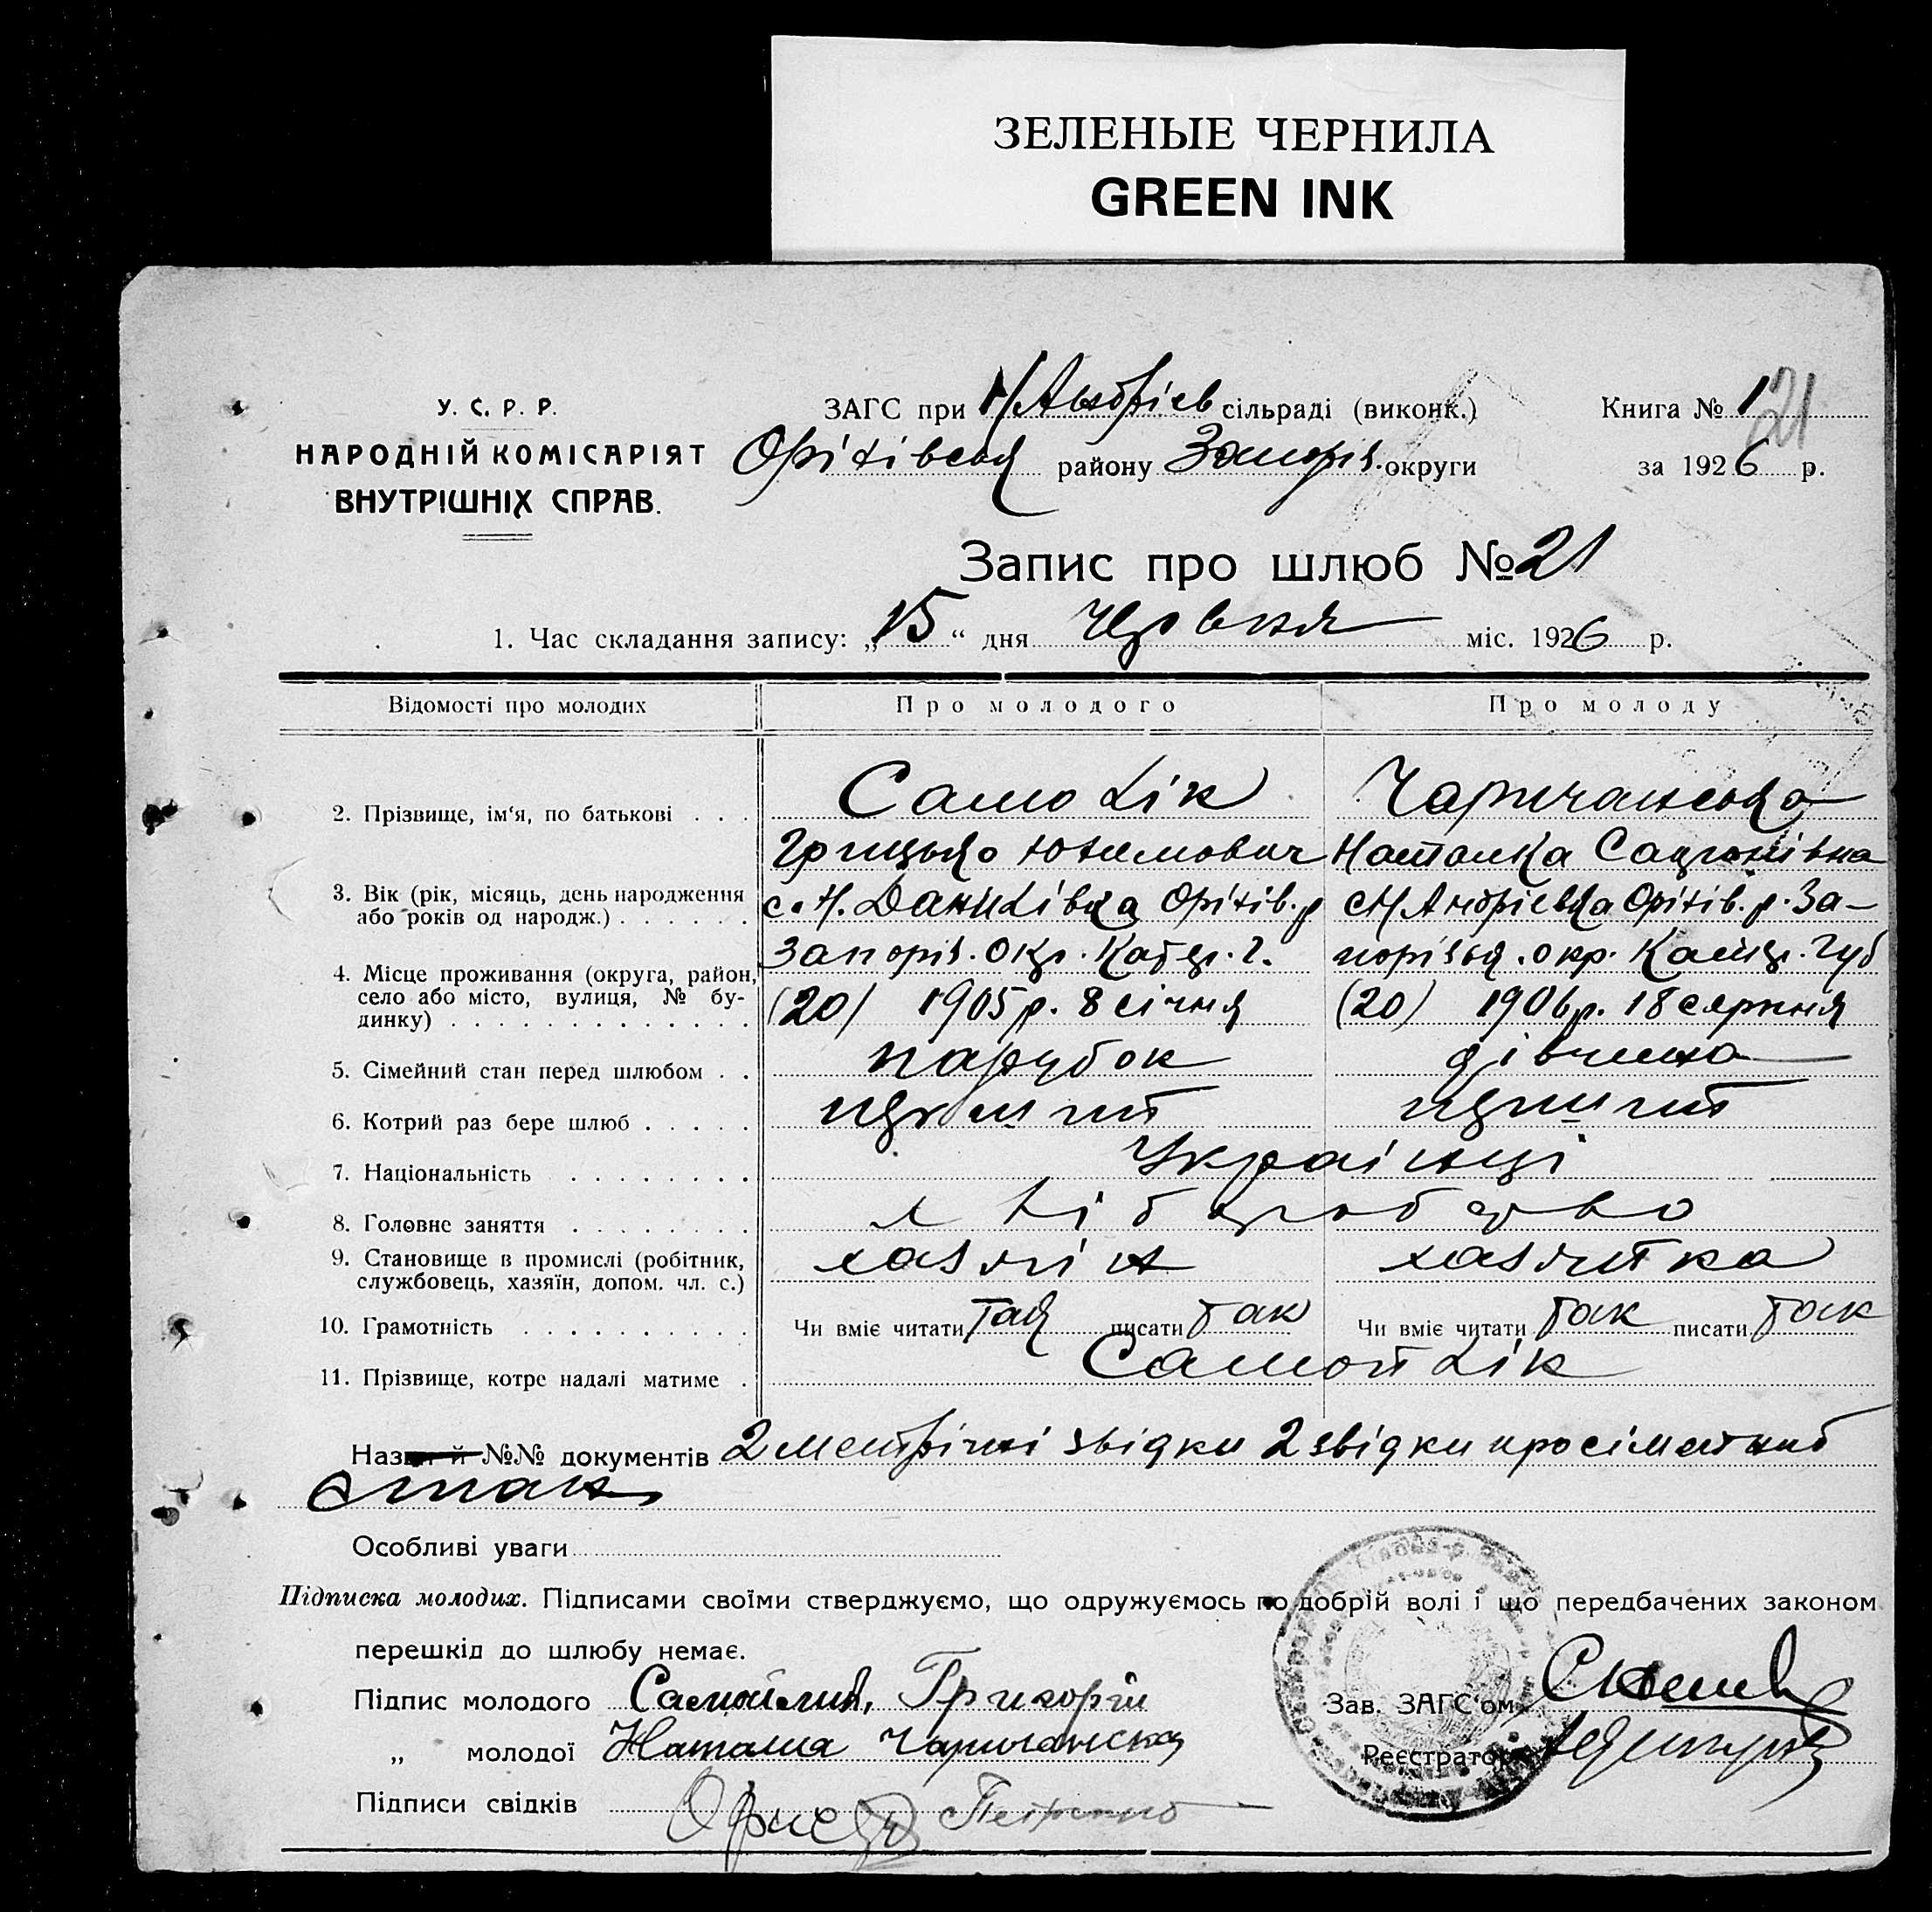 ЗЕЛЕНЫЕ ЧЕРНИЛА
GREEN INK
У. С. Р. Р.
НАРОДНІЙ КОМІСАРІЯТ
ВНУТРІШНІХ СПРАВ.
ЗАГС при Н/Андріев сільраді (виконк.)
Оріхівськ району Запоріз. округи
Книга № 1 21
за 1926 р.
Запис про шлюб № 21
1. Час складання запису: „15“ дня Червня міс. 1926 р.
Відомості про молодих Про молодого Про молоду
2. Прізвище, ім‘я, по батькові . . . Чаричанська
Грицько Юхимович Наталка
3. Вік (рік, місяць, день народження
або років од народж.) . . . . . . с. Н. Данилівка Оріхів. р СН Андрієвка Оріхів. р. За-
Запоріз. Окр. порізьк. окр. Губ
4. Місце проживання (округа, район,
село або місто, вулиця, № бу-
динку) . . . . . . . . . . . . . (20) 1905 р. 8 січня (20) 1906 р. 18 серпня
5. Сімейний стан перед шлюбом . . парубок дівчина
6. Котрий раз бере шлюб . . . . .
7. Національність . . . . . . . . Українці
8. Головне заняття . . . . . . . . хліборобство
9. Становище в промислі (робітник,
службовець, хазяїн, допом. чл. с.) хазяїн хазяйка
10. Грамотність . . . . . . . . . . Чи вміє читати так писати так Чи вміє читати так писати так
11. Прізвище, котре надалі матиме . Самойлік
№№ документів 2 метричні звідки 2 звідки про сімейний
стан
Особливі уваги
Підписка молодих. Підписами своїми стверджуємо, що одружуємось по добрій волі і що передбачених законом
перешкід до шлюбу немає.
Підпис молодого Григорій
„ молодої Наталиа Чаричанска
Підписи свідків
Зав. ЗАГС‘ом
Реєстратор